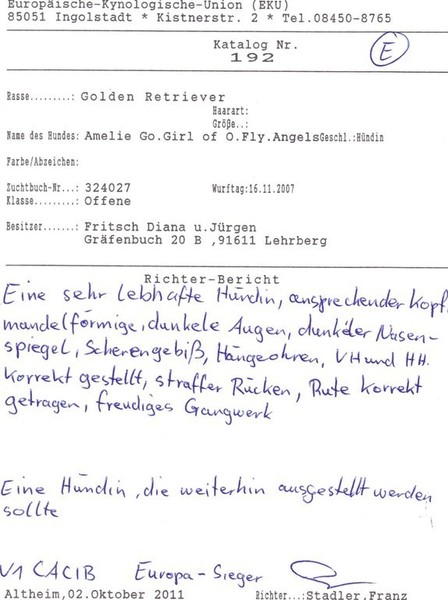 Europäische-Kynologische-Union (EKU)
85051 Ingolstadt * Kistnerstr. 2 * Tel.08450-8765
Katalog Nr.
192
E
Rasse.........: Golden Retriever
Haarart:
Größe..:
Name des Hundes: Amelie Go.Girl of O.Fly.Angels Geschl.:Hündin
Farbe/Abzeichen:
Zuchtbuch-Nr...: 324027 Wurftag:16.11.2007
Klasse.........: Offene
Besitzer ......: Fritsch Diana u.Jürgen
Gräfenbuch 20 B ,91611 Lehrberg
Richter-Bericht
Eine sehr lebhafte Hündin, ansprechender Kopf,
mandelförmige, dunkele Augen, dunkeler Nasen-
spiegel, Scherengebiß, Hängeohren, VH und HH.
korrekt gestellt, straffer Rücken, Rute korrekt
getragen, freudiges Gangwerk
Eine Hündin, die weiterhin ausgestellt werden
sollte
V1 CACIB Europa-Sieger
Altheim,02.Oktober 2011 Richter...:Stadler.Franz